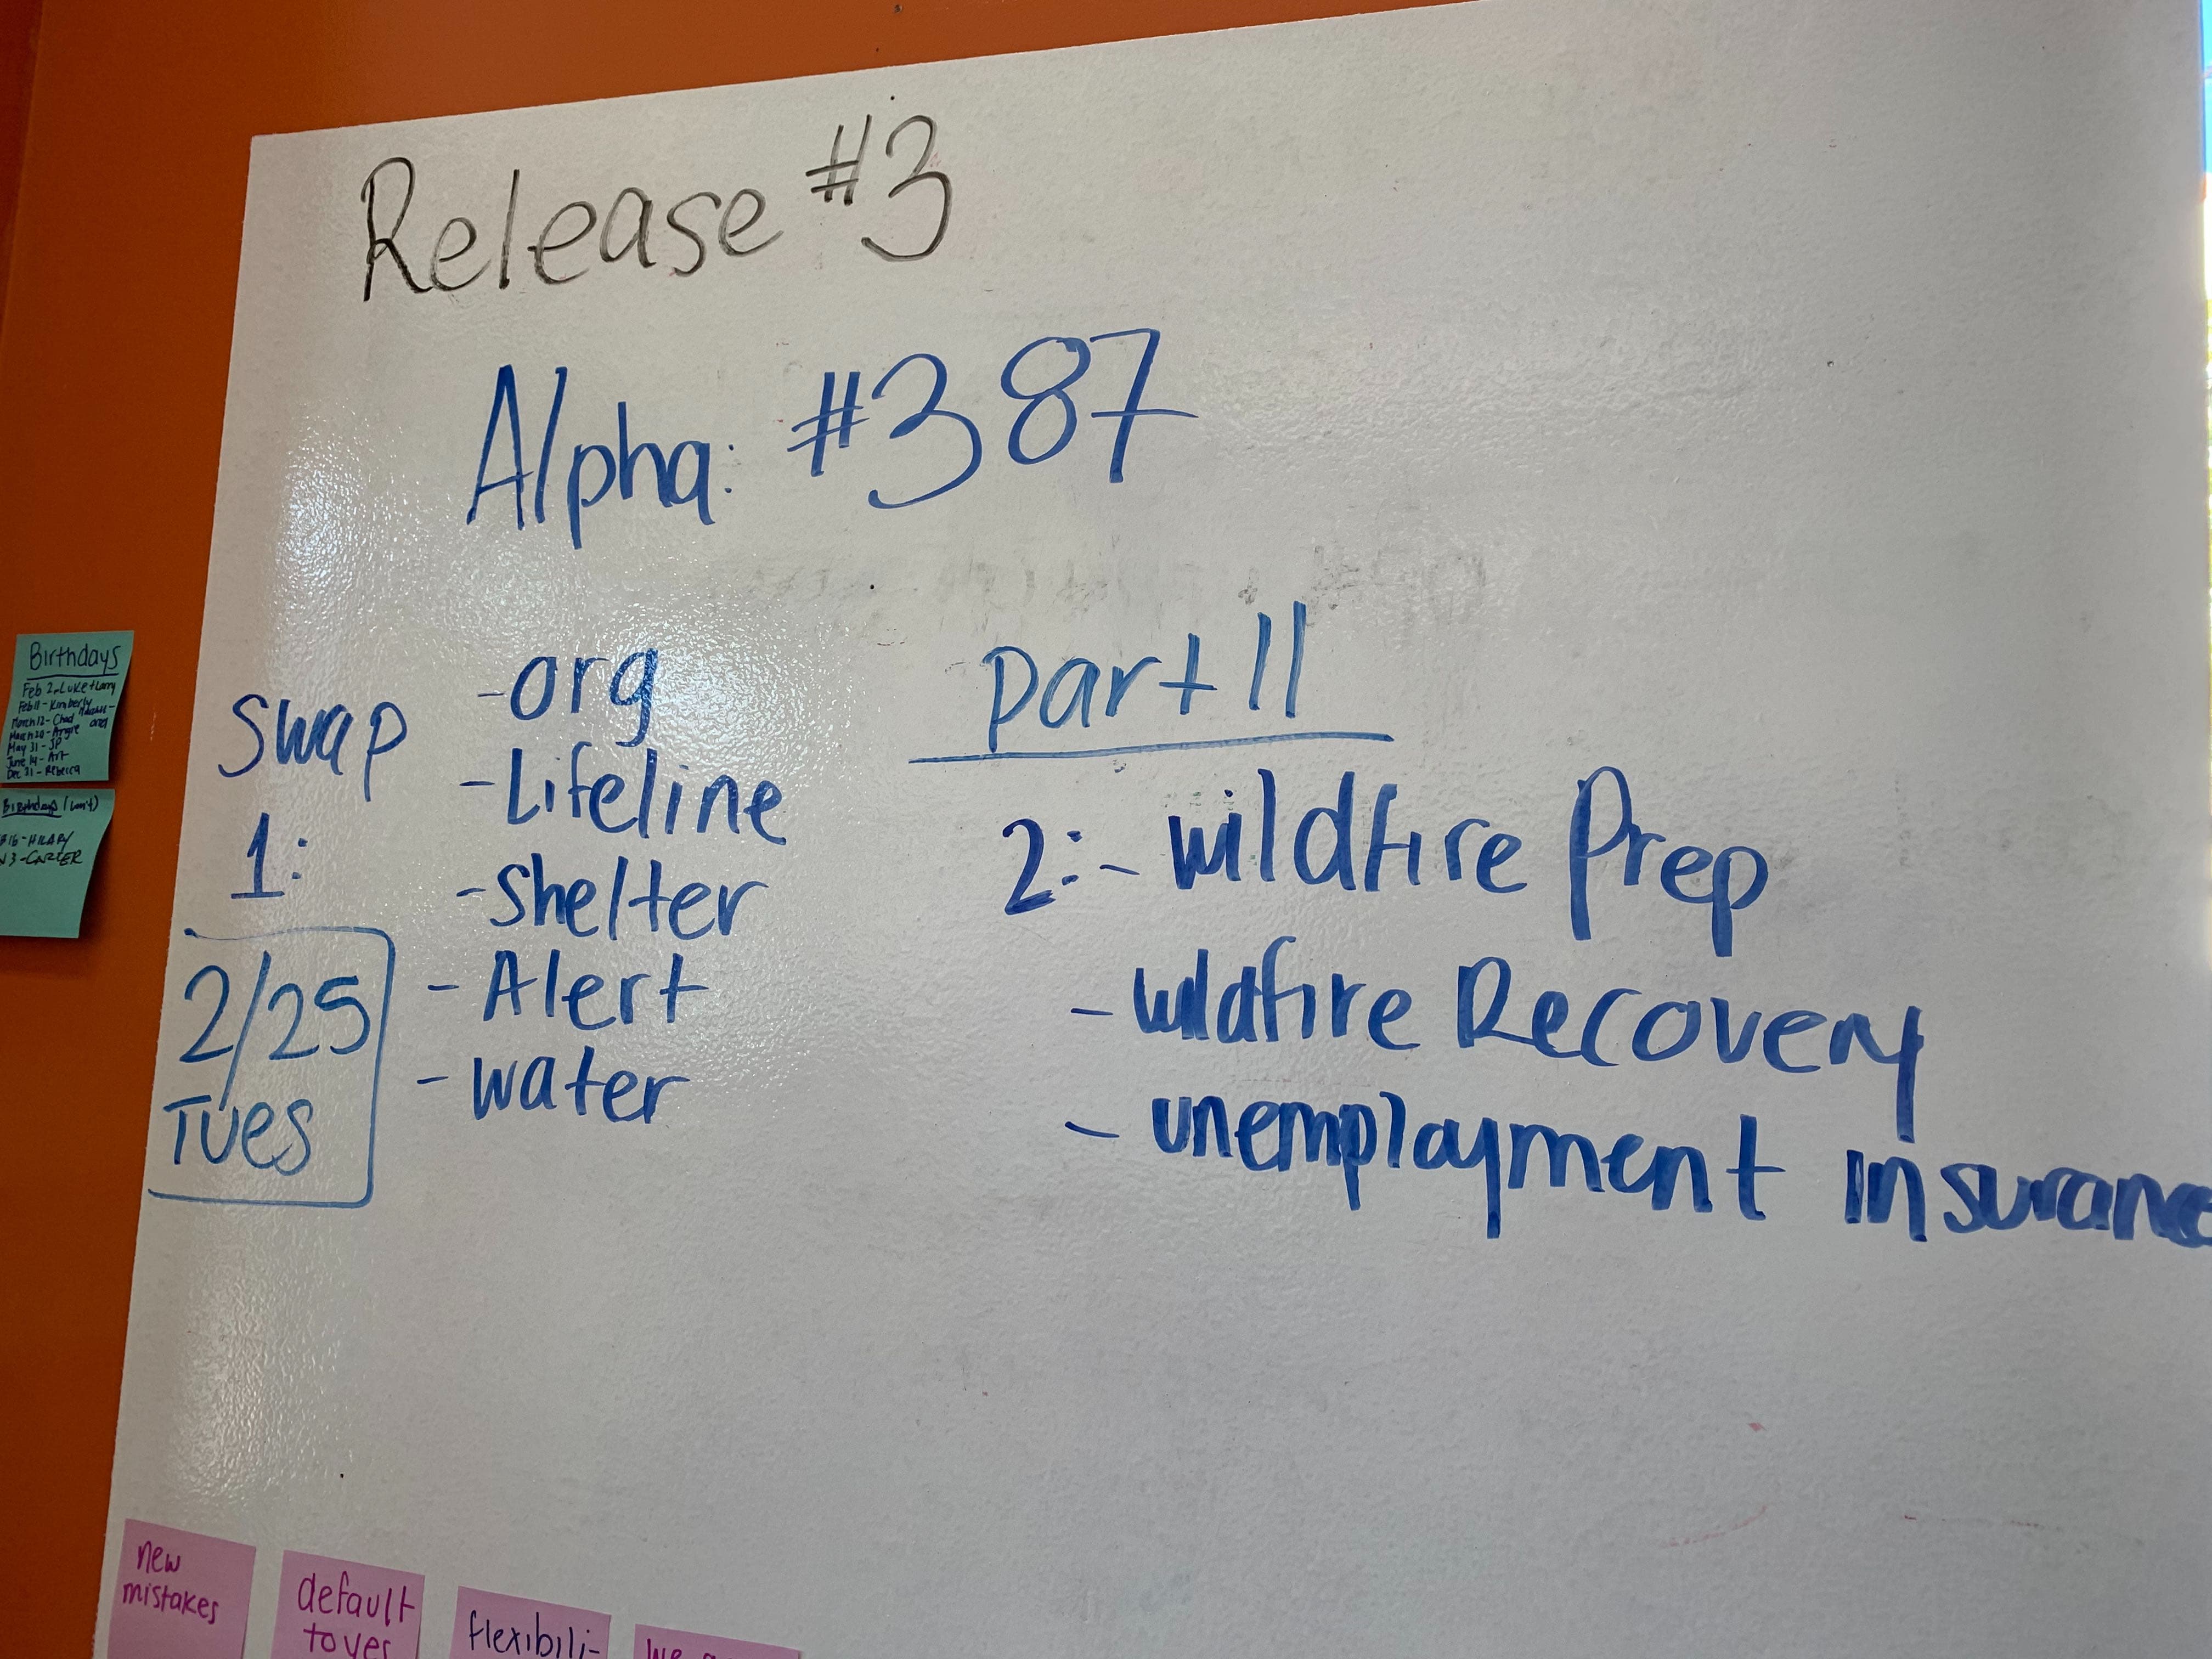 Release #3
Alpha: #387
swap
1:
2/25
Tues
-org
-Lifeline
-Shelter
-Alert
-water
part II
2:- wildfire Prep
- wildfire Recovery
- unemployment insurance
Birthdays
Feb 2 - Luke + Larry
Feb 11 - Kimberly
March 12 - Chad
March 20 - Angie
May 31 - JP
June 14 - Art
Dec 31 - Rebecca
Birthdays (con't)
16 - HILARY
3 - CARTER
new
mistakes
default
to yes
flexibili-
we